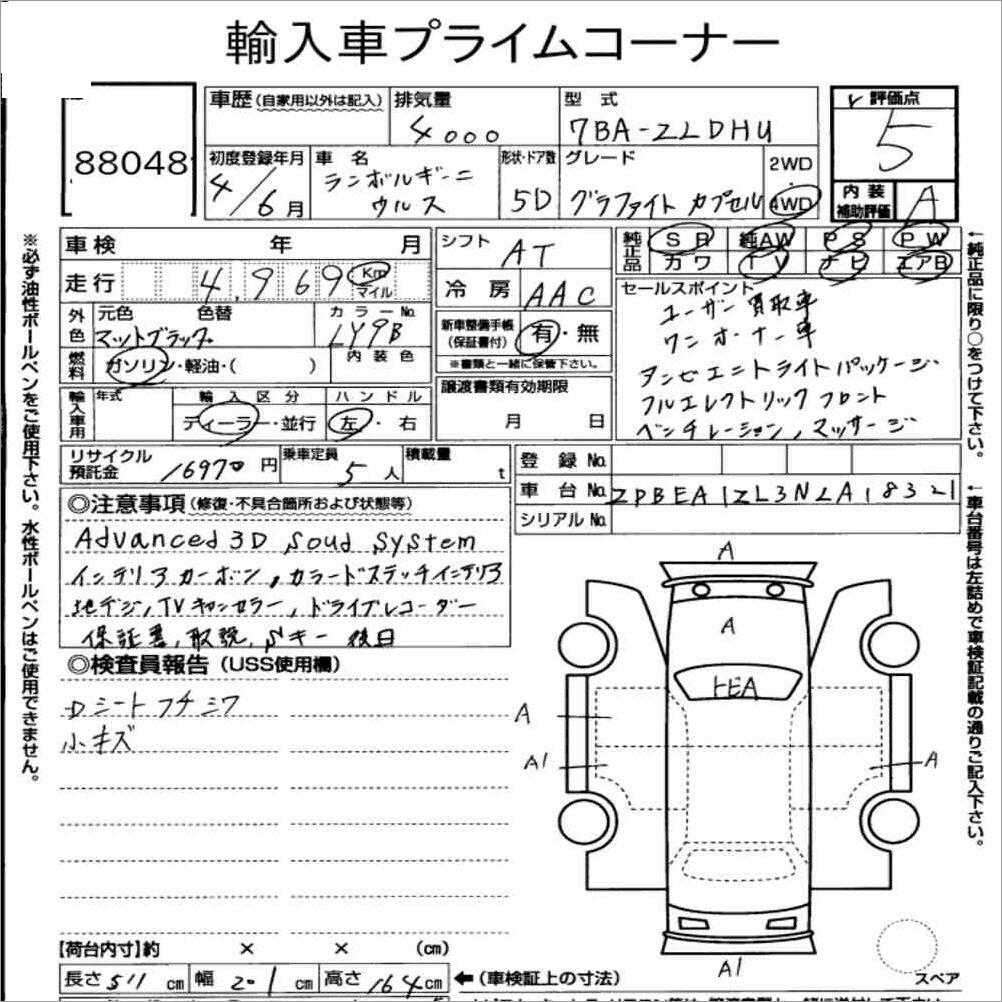 輸入車プライムコーナー
88048
車歴(自家用以外は記入)
排気量
4000
型式
7BA-ZLDHU
評価点
5
内装補助評価
A
初度登録年月
4/6月
車名
ランボルギーニ
ウルス
形状・ドア数
5D
グレード
グラファイト カプセル
2WD
・
4WD
車検 年 月
シフト
AT
純正品
SR 純AW PS PW
カワ TV ナビ エアB
走行
4,969
Km
マイル
冷房
AAC
セールスポイント
ユーザー買取車
ワンオーナー車
タンゼエントライトパッケージ
フルエレクトリックフロント
ベンチレーション,マッサージ
外色
元色
色替
マットブラック
カラーNo.
LY9B
新車整備手帳
(保証書付)
有・無
※書類と一緒に保管下さい。
燃料
ガソリン・軽油・( )
内装色
譲渡書類有効期限
月 日
輸入車用
年式
輸入区分
ディーラー・並行
ハンドル
左・右
リサイクル預託金
16970円
乗車定員
5人
積載量
t
登録No.
車台No.
ZPBEA1ZL3NLA18321
シリアルNo.
◎注意事項(修復・不具合箇所および状態等)
Advanced 3D Soud System
インテリアカーボン,カラードステッチインテリア
地デジ,TVキャンセラー,ドライブレコーダー
保証書,取説,Sキー 後日
◎検査員報告(USS使用欄)
Dシートフチシワ
小キズ
A
A
トEA
A
A1
A
A1
スペア
【荷台内寸】約 × × (cm)
長さ511cm 幅201cm 高さ164cm
←(車検証上の寸法)
※必ず油性ボールペンをご使用下さい。水性ボールペンはご使用できません。
←純正品に限り○をつけて下さい。
←車台番号は左詰めで車検証記載の通りご記入下さい。